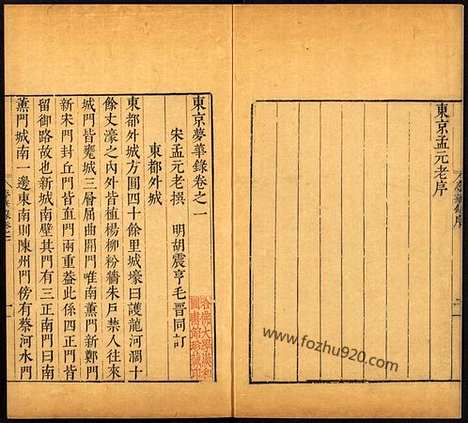 東京孟元老序
東京夢華錄卷之一
宋孟元老撰 明胡震亨毛晉同訂
東都外城
東都外城方圓四十餘里城壕曰護龍河濶十
餘丈濠之內外皆植楊柳粉牆朱戶禁人往來
城門皆甕城三層屈曲開門唯南薰門新鄭門
新宋門封丘門皆直門兩重葢此係四正門皆
留御路故也新城南壁其門有三正南門曰南
薰門城南一邊東南則陳州門傍有蔡河水門
www.fozhu920.com